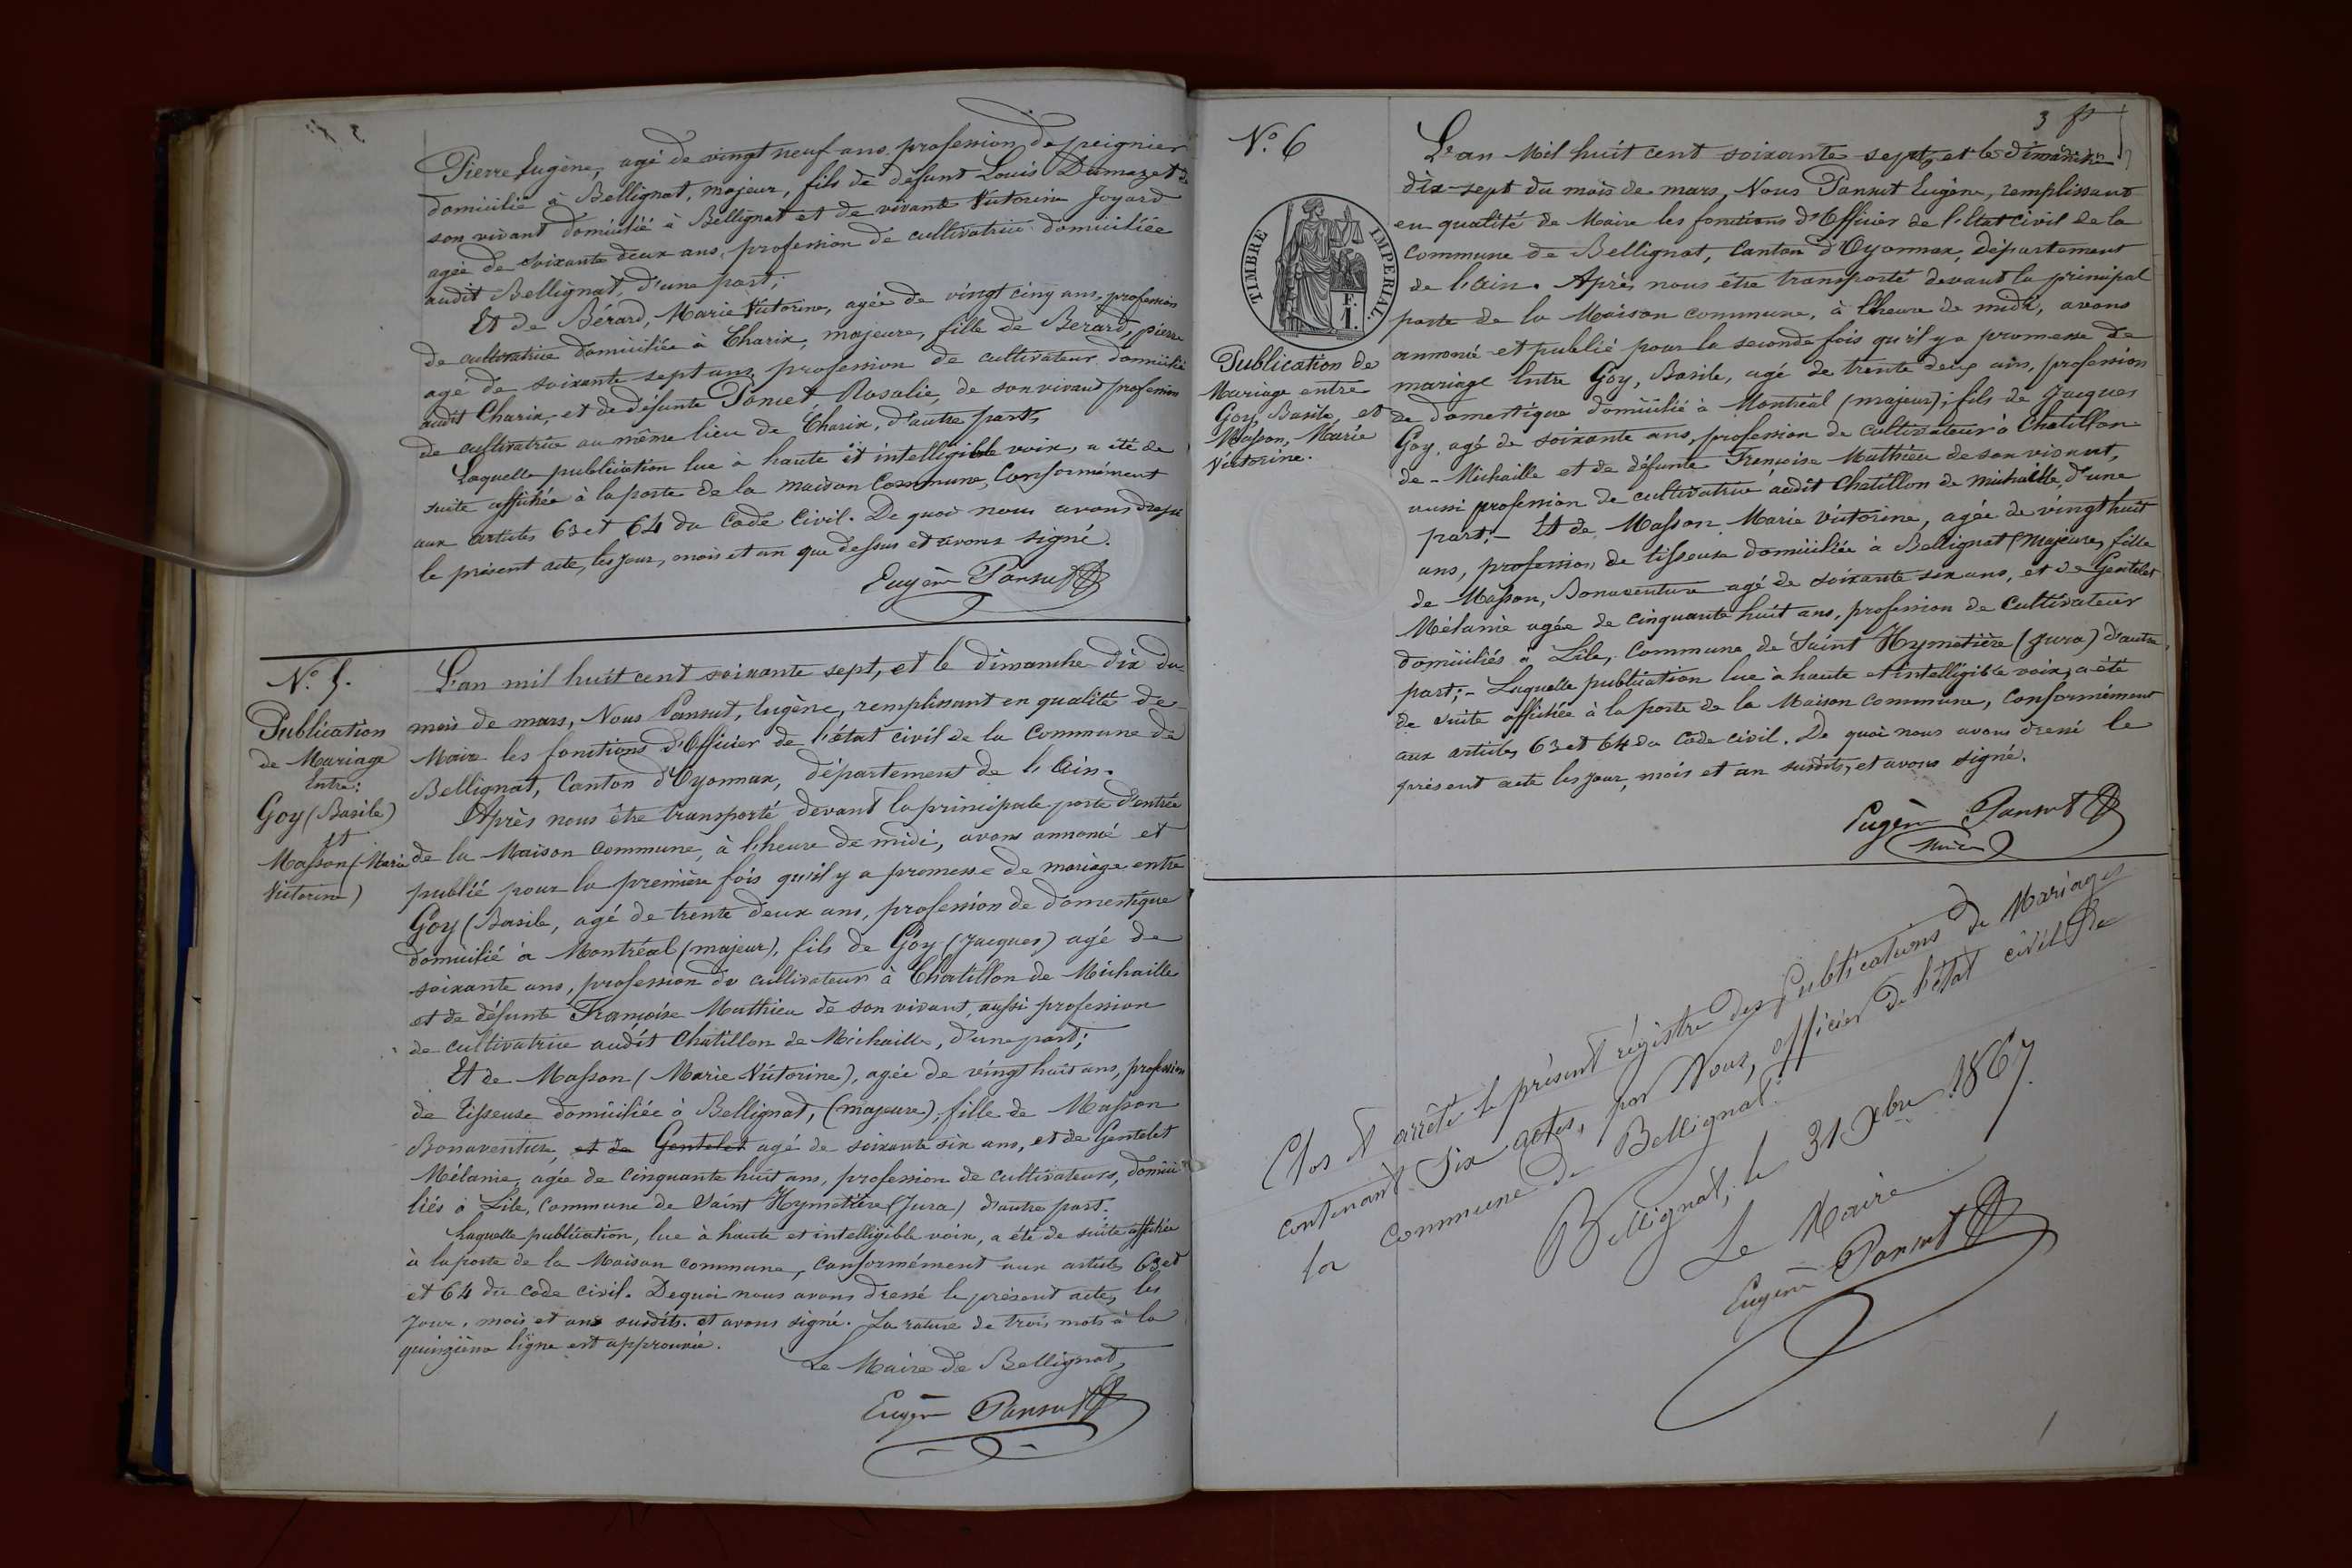 Pierre Eugène, agé de vingt neuf ans, profession de peignier
domicilié à Bellignat, majeur, fils de défunt Louis Damazet de
son vivant domicilié à Bellignat et de vivante Victorine Joyard
agée de soixante deux ans, profession de cultivatrice domiciliée
audit Bellignat, d'une part;
Et de Bérard, Marie Victorine, agée de vingt cinq ans, profession
de cultivatrice domiciliée à Charix, majeure, fille de Berard, pierre
agé de soixante sept ans, profession de cultivateur domicilié
audit Charix, et de défunte Poncet Rosalie, de son vivant profession
de cultivatrice au même lieu de Charix, d'autre part,
Laquelle publication lue à haute et intelligible voix, a été de
suite affichée à la porte de la maison Commune, Conformément
aux articles 63 et 64 du Code Civil. De quoi nous avons dressé
le présent acte, les jour, mois et an que dessus et avons signé.
Eugène Pansut
N.° 5.
Publication
de Mariage
Entre:
Goy (Basile)
et
Masson (Marie
Victorine)
L'an mil huit cent soixante sept, et le dimanche dix du
mois de mars, Nous Pansut, Eugène, remplissant en qualité de
Maire les fonctions d'Officier de l'état civil de la Commune de
Bellignat, Canton d'Oyonnax, département de l'Ain.
Après nous être transporté devant la principale porte d'entrée
de la Maison commune, à l'heure de midi, avons annoncé et
publié pour la première fois qu'il y a promesse de mariage entre
Goy (Basile, agé de trente deux ans, profession de domestique
domicilié à Montréal (majeur), fils de Goy (Jacques) agé de
soixante ans, profession de cultivateur à Chatillon de Michaille
et de défunte Françoise Mathieu de son vivant, aussi profession
de cultivatrice audit Chatillon de Michaille, d'une part;
Et de Masson (Marie Victorine), agée de vingt huit ans, profession
de tisseuse domiciliée à Bellignat, (majeure), fille de Masson
Bonaventure, et de Gentelet agé de soixante six ans, et de Gentelet
Mélanie, agée de cinquante huit ans, profession de cultivateurs, domici
liés à Lile, Commune de Saint Hymetière (Jura) d'autre part.
Laquelle publication, lue à haute et intelligible voix, a été de suite affichée
à la porte de la Maison commune, conformément aux articles 63 et
et 64 du code civil. De quoi nous avons dressé le présent acte, les
jour, mois et ans susdits et avons signé. La rature de trois mots à la
quinzième ligne est approuvée.
Le Maire de Bellignat,
Eugène Pansut
3
N.° 6
TIMBRE IMPERIAL.
Publication de
Mariage entre
Goy, Basile, et
Masson, Marie
Victorine.
L'an Mil huit cent soixante sept, et le dimanche
dix-sept du mois de mars, Nous Pansut Eugène, remplissant
en qualité de Maire les fonctions d'Officier de l'Etat Civil de la
Commune de Bellignat, Canton d'Oyonnax, département
de l'Ain. Après nous être transporté devant la principal
porte de la Maison commune, à l'heure de midi, avons
annoncé et publié pour la seconde fois qu'il y a promesse de
mariage Entre Goy, Basile, agé de trente deux ans, profession
de domestique domicilié à Montréal (majeur); fils de Jacques
Goy, agé de soixante ans, profession de cultivateur à Chatillon
de - Michaille et de défunte Françoise Mathieu de son vivant,
aussi profession de cultivatrice audit Chatillon de michaille, d'une
part; - Et de Masson Marie Victorine, agée de vingt huit
ans, profession de tisseuse domiciliée à Bellignat (Majeure, fille
de Masson, Bonaventure agé de soixante six ans, et de Gentelet
Mélanie agée de cinquante huit ans, profession de Cultivateur
domiciliés à Lile, Commune de Saint Hymetière (Jura) d'autre
part; - Laquelle publication lue à haute et intelligible voix, a été
de suite affichée à la porte de la Maison commune, conformément
aux articles 63 et 64 du Code civil. De quoi nous avons dressé le
présent acte les jour, mois et an susdits, et avons signé.
Eugène Pansut
Maire
Clos et arrêté le présent régistre des Publications de Mariages
contenant Six actes, par Nous, officier de l'état civil de
la Commune de Bellignat.
Bellignat, le 31 Xbre 1867.
Le Maire
Eugène Pansut